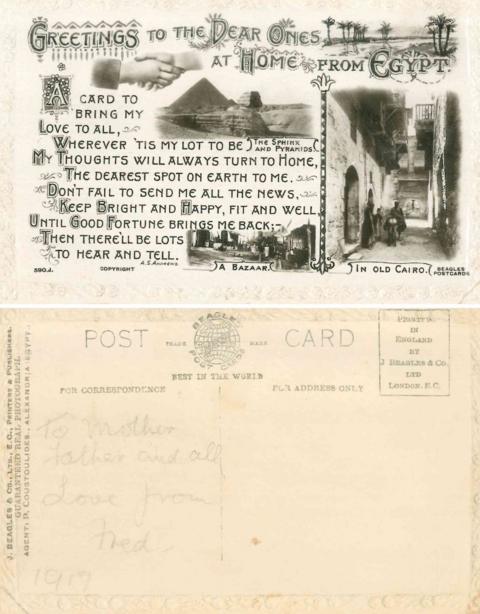 GREETINGS TO THE DEAR ONES
AT HOME FROM EGYPT.
A CARD TO
BRING MY
LOVE TO ALL,
WHEREVER 'TIS MY LOT TO BE
MY THOUGHTS WILL ALWAYS TURN TO HOME,
THE DEAREST SPOT ON EARTH TO ME.
DON'T FAIL TO SEND ME ALL THE NEWS,
KEEP BRIGHT AND HAPPY, FIT AND WELL,
UNTIL GOOD FORTUNE BRINGS ME BACK:-
THEN THERE'LL BE LOTS
TO HEAR AND TELL.
A.S. ANDREWS
THE SPHINX
AND PYRAMIDS.
A BAZAAR.
IN OLD CAIRO.
BEAGLES
POSTCARDS
590.J.
COPYRIGHT
POST CARD
TRADE MARK
BEAGLES
POST CARDS
BEST IN THE WORLD
FOR CORRESPONDENCE
FOR ADDRESS ONLY
PRINTED
IN
ENGLAND
BY
J BEAGLES & CO.
LTD
LONDON. E.C.
J. BEAGLES & CO., LTD., E.C., PRINTERS & PUBLISHERS.
GUARANTEED REAL PHOTOGRAPH
AGENT: D. COUSTOULIDES, ALEXANDRIA EGYPT.
To Mother
Father and all
Love from
Fred
1917